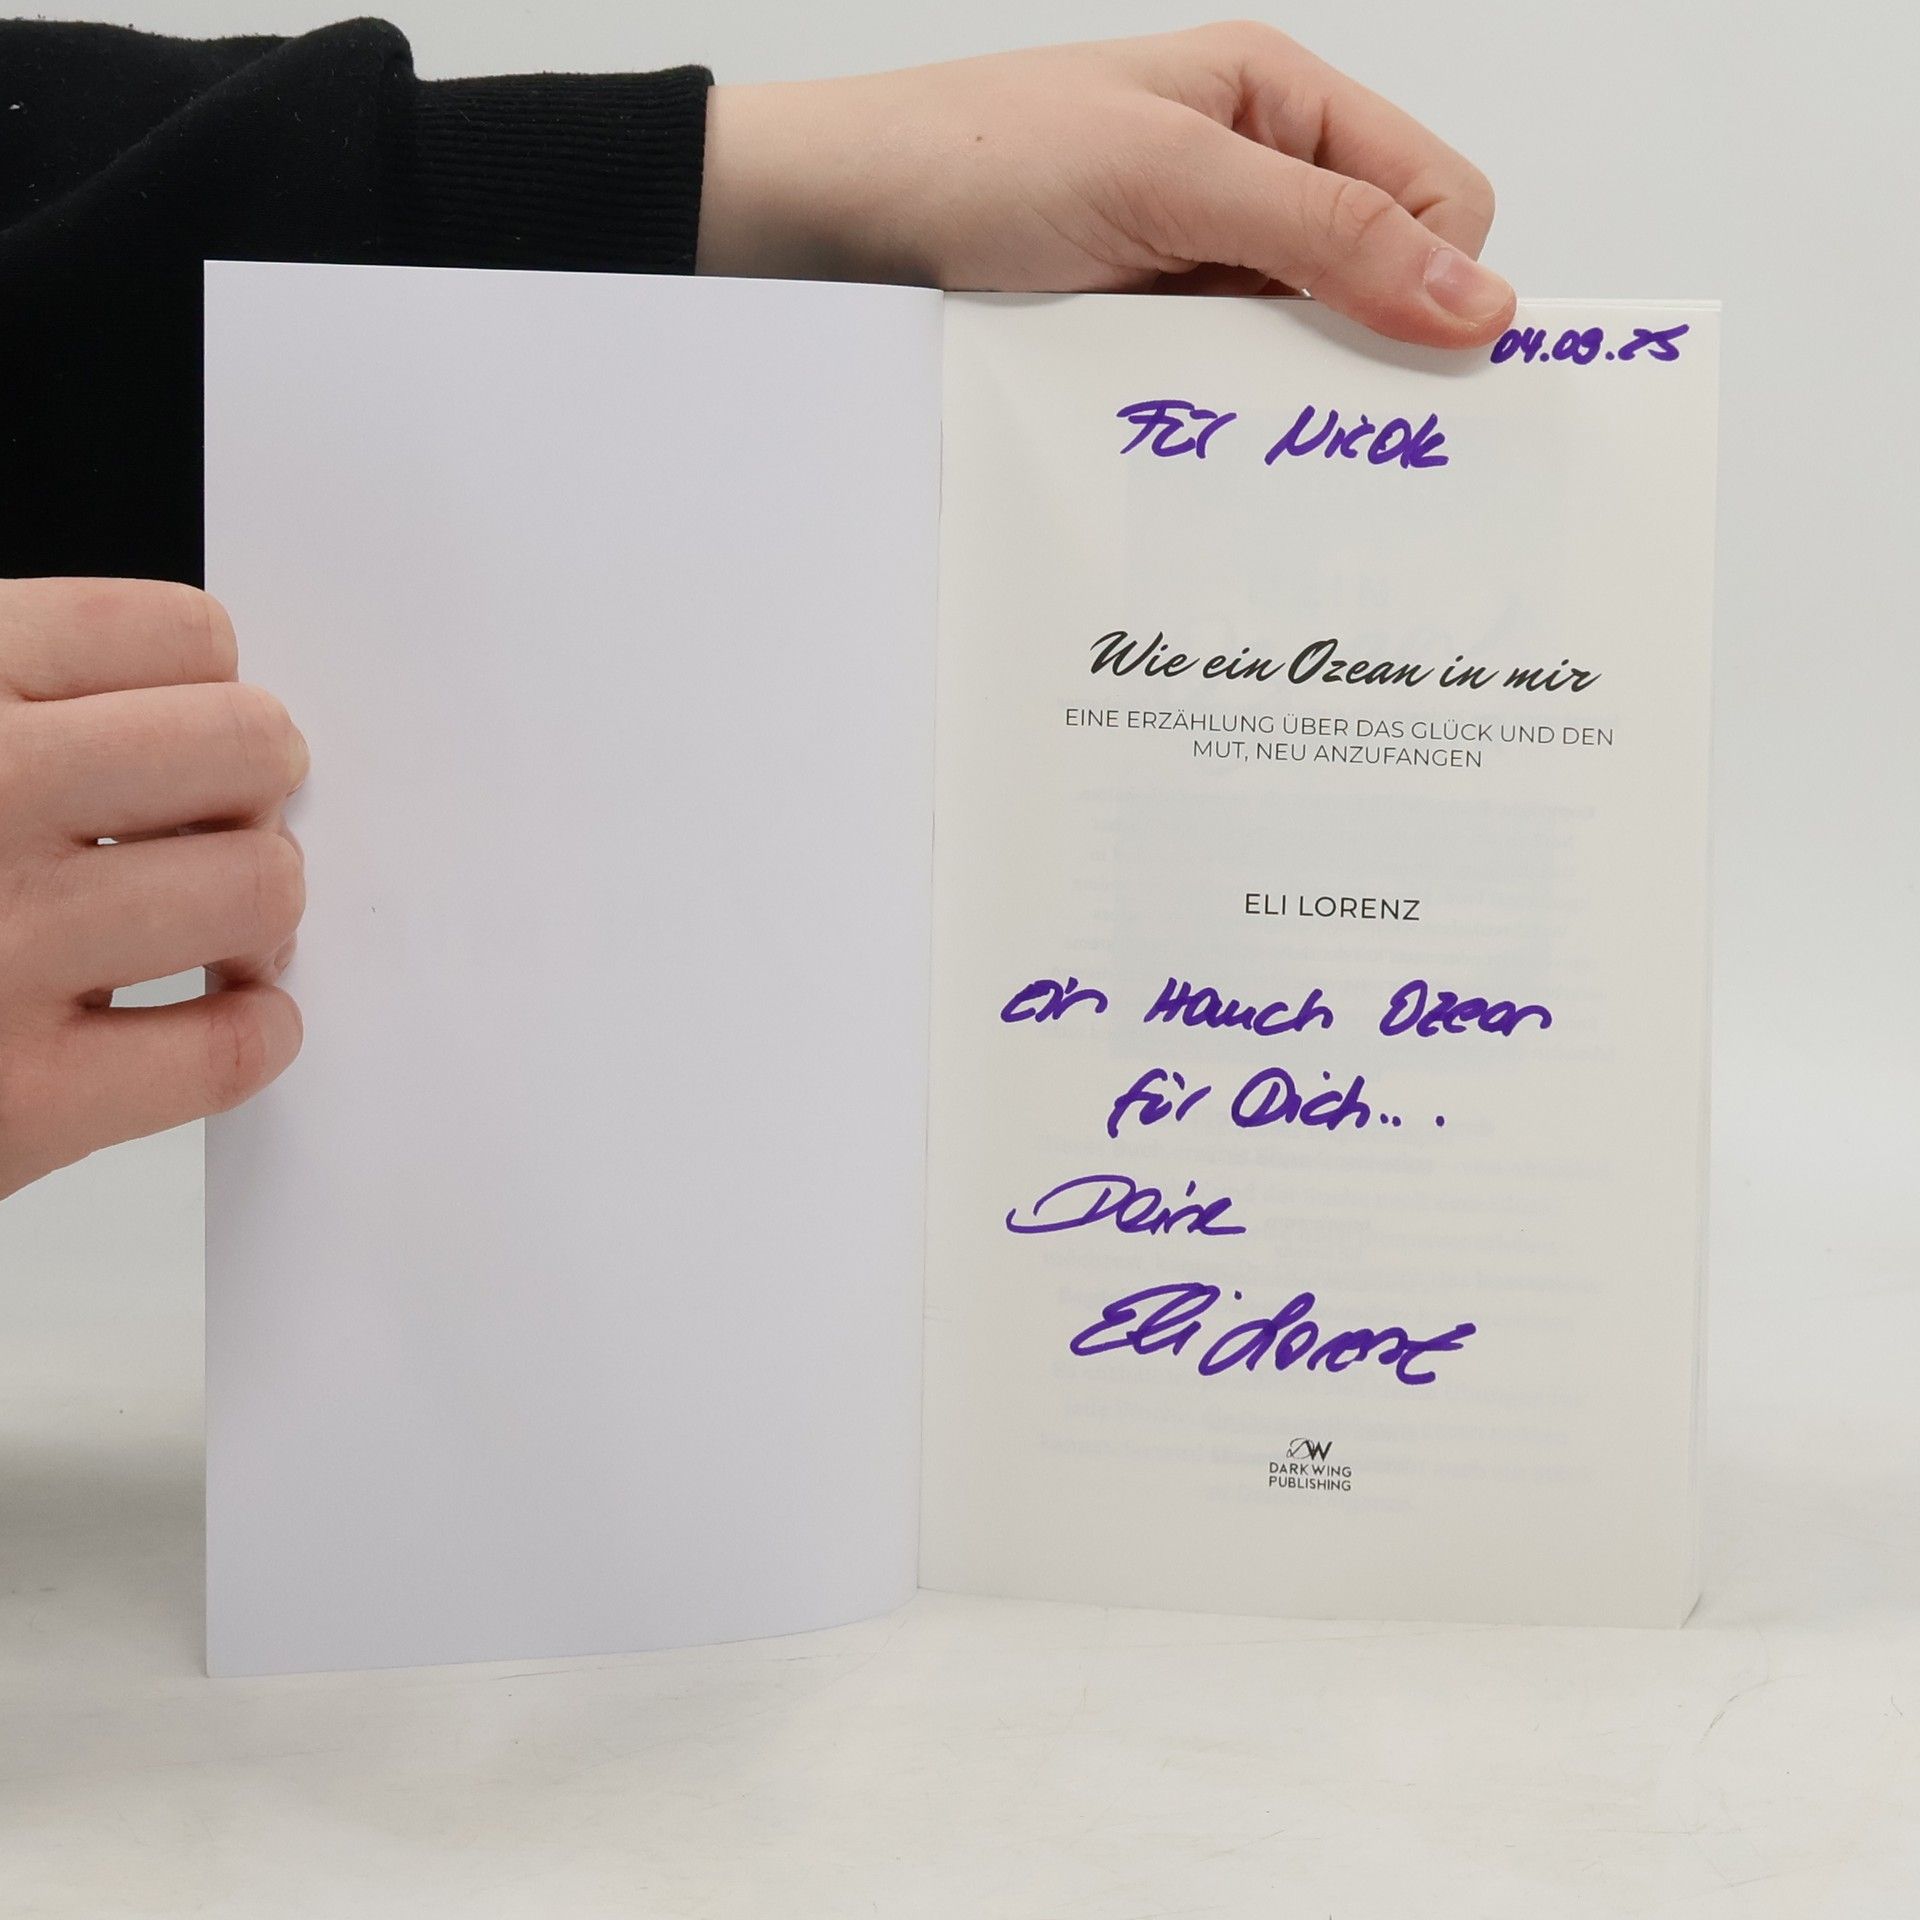 04.09.25
Für Nicole
Wie ein Ozean in mir
EINE ERZÄHLUNG ÜBER DAS GLÜCK UND DEN
MUT, NEU ANZUFANGEN
ELI LORENZ
Ein Hauch Ozean
für Dich...
Deine
Eli Lorenz
DW
DARKWING
PUBLISHING